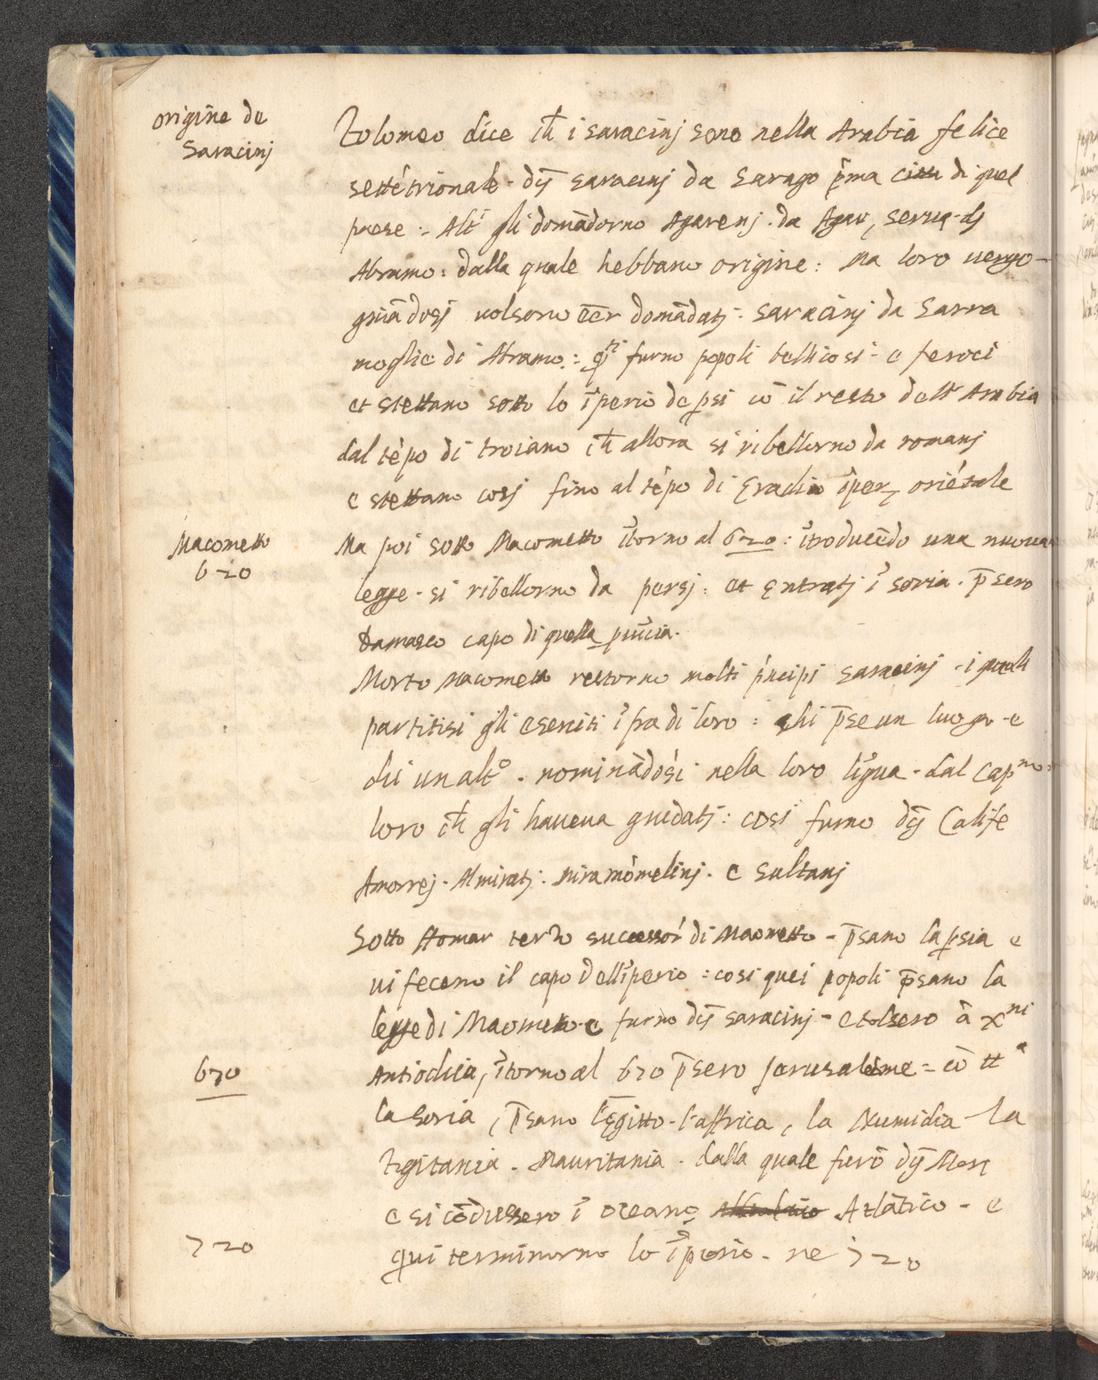 origine de
Saracinj
Tolomeo dice ch̃ i saracinj sono nella Arabia felice
settẽtrionale · dj̃ Saracinj da Sarago p̃ma citta di quel
paese :. Alt̃i gli domãdorno Agarenj · da Agar, serua dj
Abramo : dalla quale hebbano origine : Ma loro uergo-
gniãdosj uolsono eẽr domãdatj · Saracinj da Sarra
moglie di Abramo : q̃sti furno popoli bellicosi · e feroci
et stettano sotto lo ĩperio de psi cõ il resto dell Arabia
dal tẽpo di troiano ch̃ allora si ribellorno da romanj
e stettano cosj fino al tẽpo di Eradio ĩper oriẽtale
Macometto
620
Ma poi sotto Macometto ĩtorno al 620 : ĩtroducẽdo una nuoua
legge · si ribellorno da persj : et Entratj ĩ soria · p̃sero
Damasco capo di quella puĩcia ·
Morto Macometto restorno molti p̃ncipi saracinj · i quali
partitisi gli eserciti ĩ fra di loro : chi p̃se un luogo · e
chi un altº · nominãdosi nella loro lĩgua · dal capno
loro ch̃ gli haueua guidatj : cosi furno dj̃ Calife
Amorrej · Almiratj · miramõmelinj · e Sultanj
Sotto Homar terzo successor̃ di Maometto - p̃sano la psia e
ui fecano il capo dell ĩperio : cosi quei popoli p̃sano la
legge di Maometto e furno dj̃ saracinj - e tolsero à xni
Antiochia, ĩtorno al 630 p̃sero Jerusaleme = cõ ttª
630
la Soria, p̃sano l Egitto · l affrica, la Numidia la
Tigitania · Mauritania · dalla quale furõ dj̃ Mori
e si cõdussero ĩ oceano Atlãtico - e
720
qui terminorno lo ĩperio · ne 720